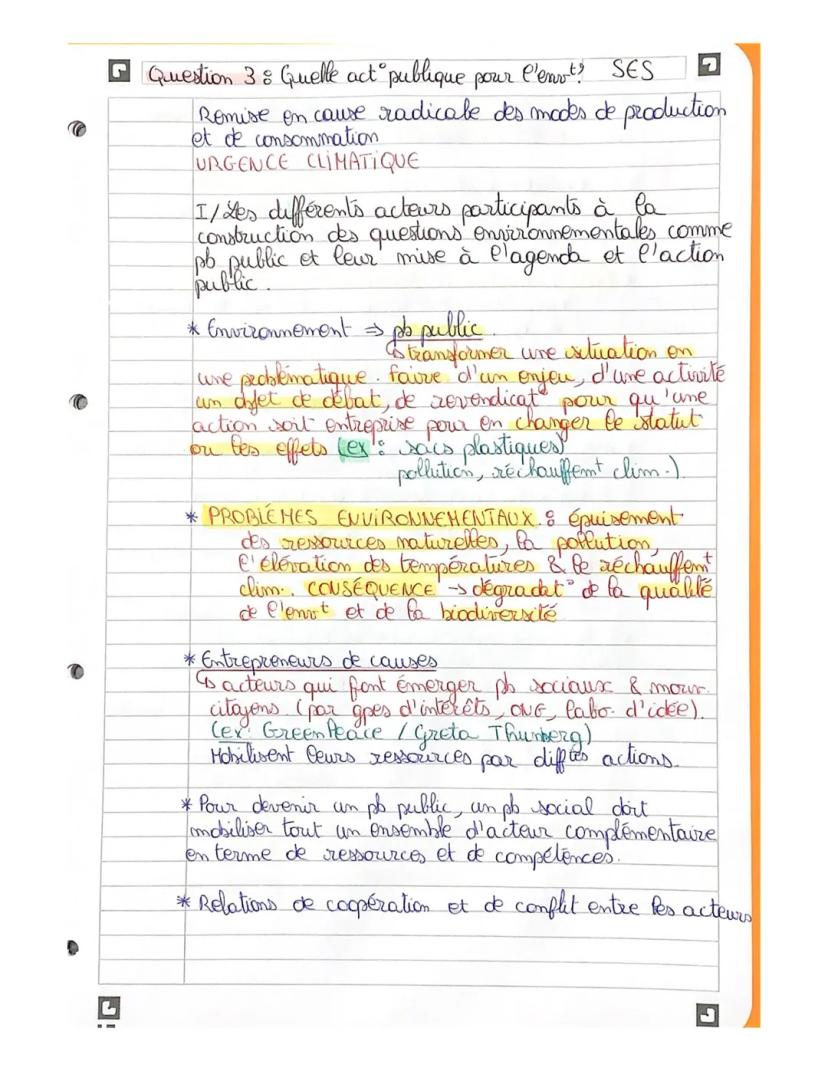 Question 3 : Quelle act° publique pour l'envt ? SES
Remise en cause radicale des modes de production
et de consommation
URGENCE CLIMATIQUE
I/ Les différents acteurs participants à la
construction des questions environnementales comme
pb public et leur mise à l'agenda et l'action
public.
* Environnement ⇒ pb public.
↳ transformer une situation en
une problématique. faire d'un enjeu, d'une activité
un objet de débat, de revendicat° pour qu'une
action soit entreprise pour en changer le statut
ou les effets (ex : sacs plastiques)
pollution, réchauffemt clim.).
* PROBLÈMES ENVIRONNEMENTAUX : épuisement
des ressources naturelles, la pollution,
l'élévation des températures & le réchauffemt
clim.. CONSÉQUENCE → dégradat° de la qualité
de l'envt et de la biodiversité
* Entrepreneurs de causes
↳ acteurs qui font émerger pb sociaux & mouv.
citoyens. (par gpes d'intérêts, ONG, labo. d'idée).
(ex: GreenPeace / Greta Thunberg)
Mobilisent leurs ressources par difftes actions.
* Pour devenir un pb public, un pb social doit
mobiliser tout un ensemble d'acteur complémentaire
en terme de ressources et de compétences.
* Relations de coopération et de conflit entre les acteurs